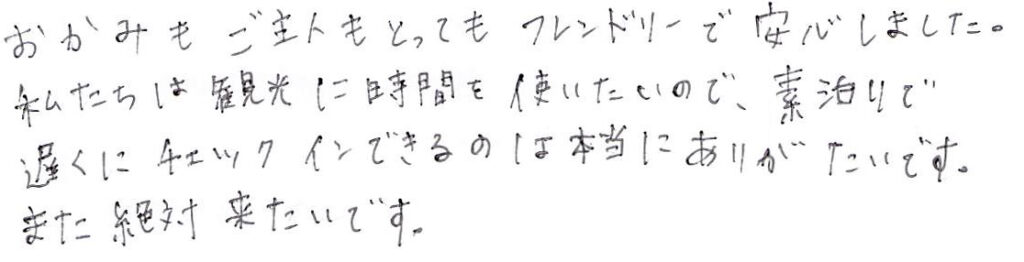 おかみも ご主人もとっても フレンドリーで 安心しました。
私たちは 観光に時間を 使いたいので、素泊りで
遅くに チェックインできるのは本当にありがたいです。
また絶対 来たいです。